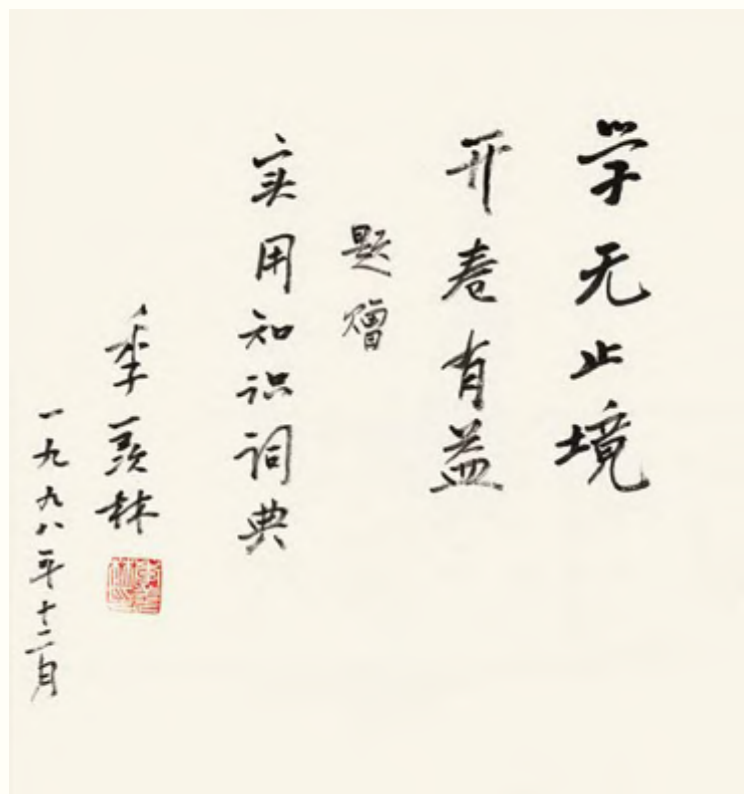 学无止境
开卷有益
题赠
实用知识词典
季羡林
一九九八年十二月